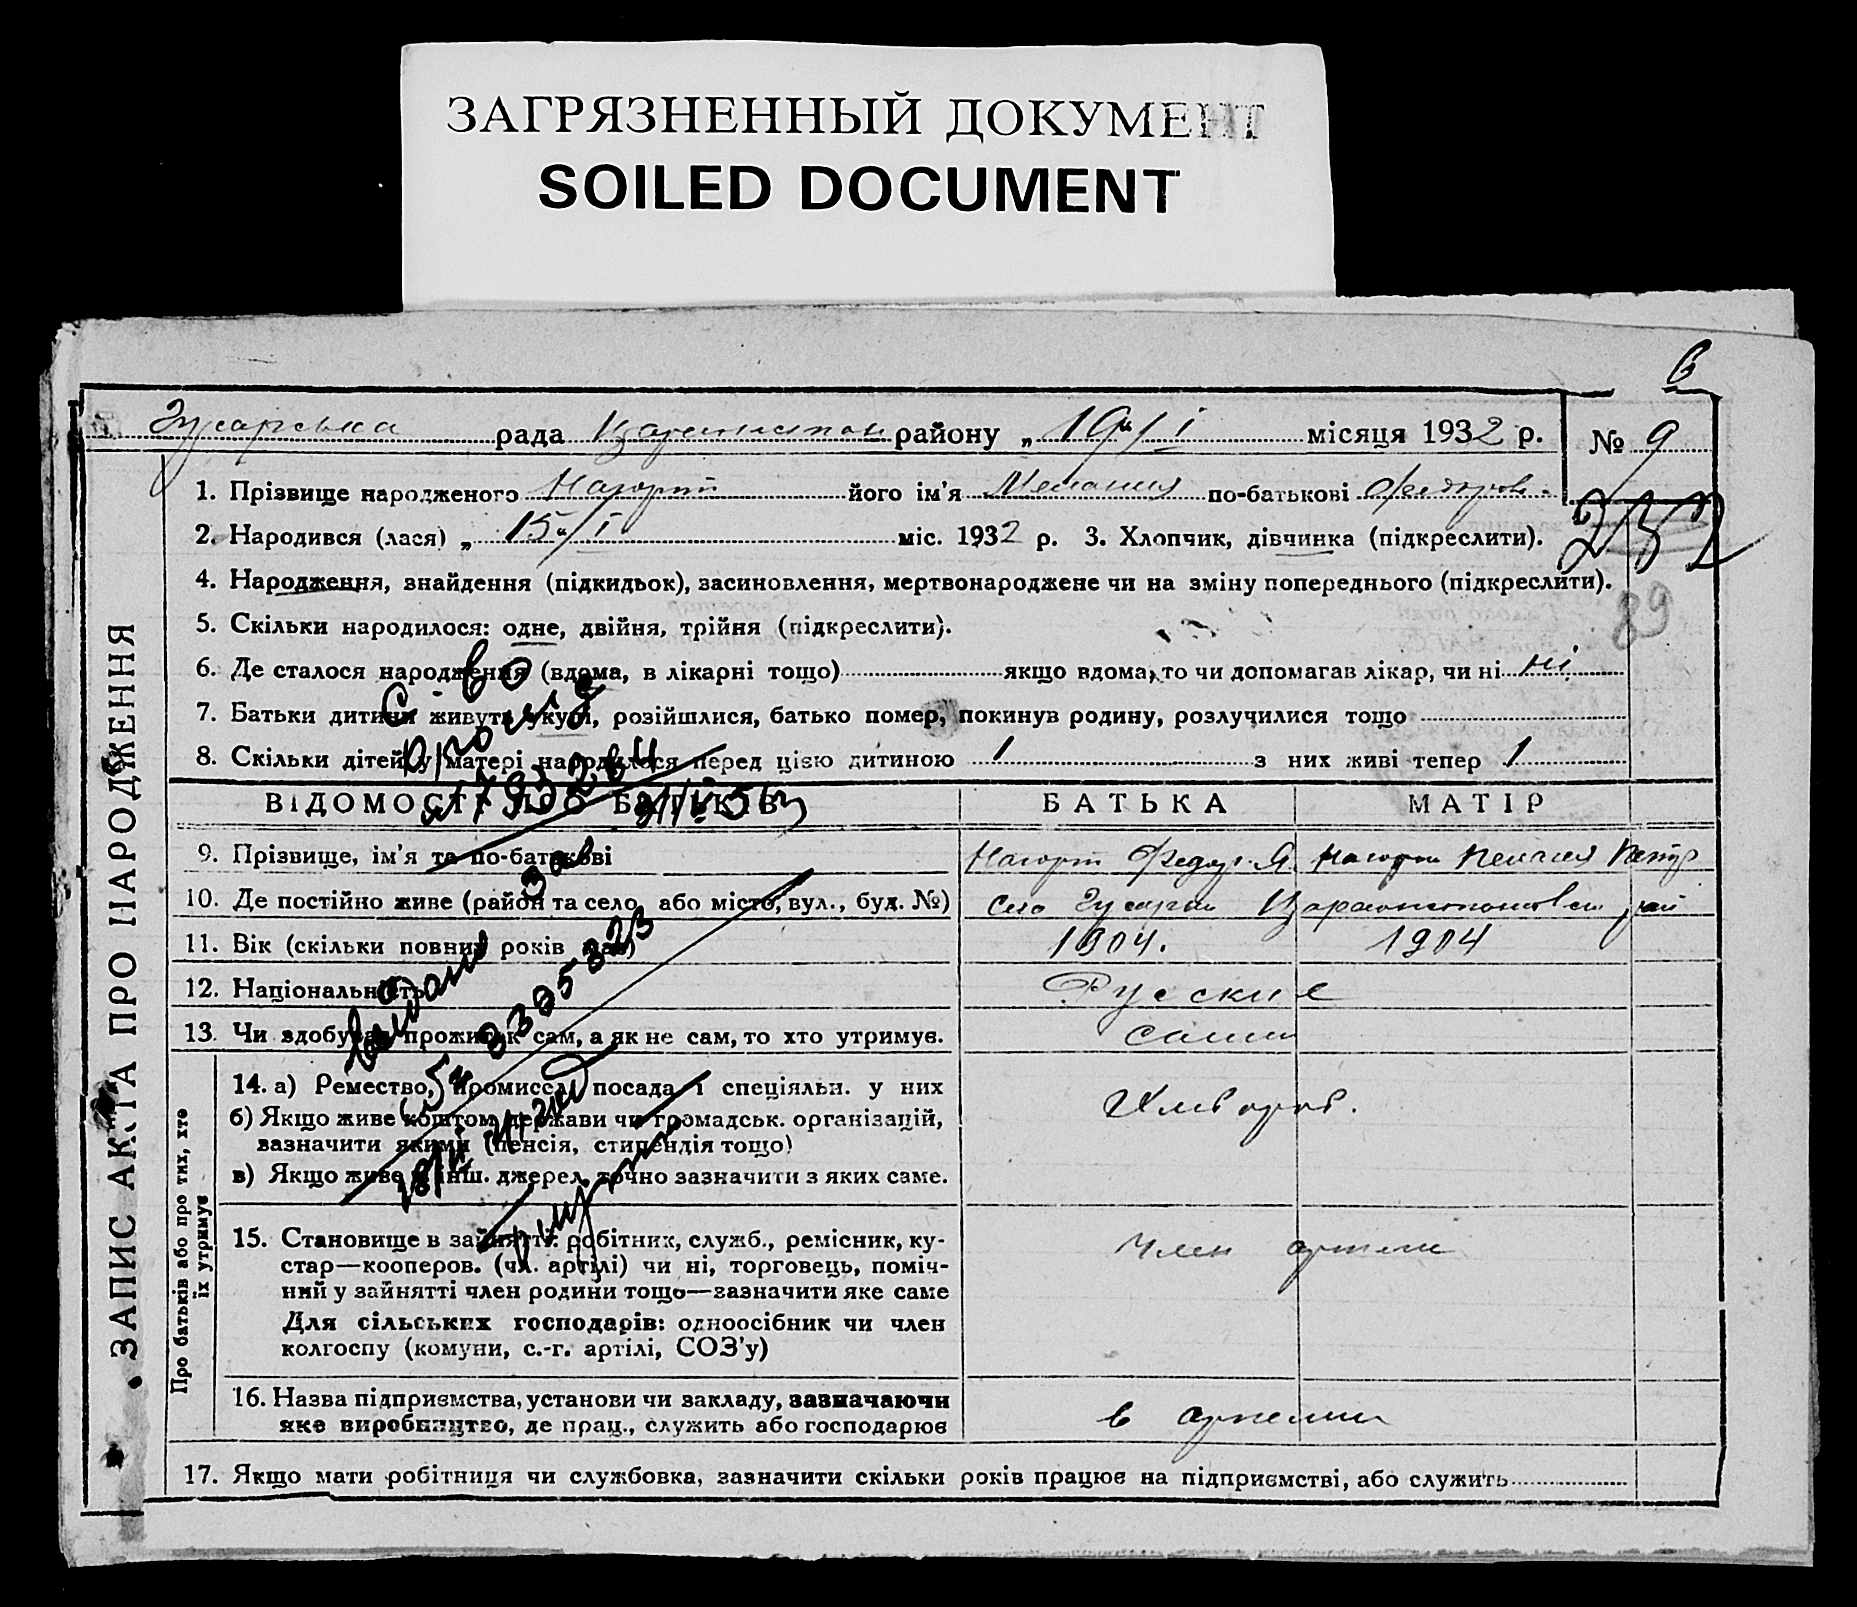 ЗАГРЯЗНЕННЫЙ ДОКУМЕНТ
SOILED DOCUMENT
в
рада району „ 19" / I місяця 1932 р. № 9
1. Прізвище народженого його ім'я по-батькові
2. Народився (лася) „ 15" / I міс. 1932 р. 3. Хлопчик, дівчинка (підкреслити).
232
4. Народження, знайдення (підкидьок), засиновлення, мертвонароджене чи на зміну попереднього (підкреслити).
89
5. Скільки народилося: одне, двійня, трійня (підкреслити).
6. Де сталося народження (вдома, в лікарні тощо) якщо вдома, то чи допомагав лікар, чи ні ні
7. Батьки дитини живуть укупі, розійшлися, батько помер, покинув родину, розлучилися тощо
8. Скільки дітей у матері народилося перед цією дитиною 1 з них живі тепер 1
ВІДОМОСТІ ПРО БАТЬКІВ БАТЬКА МАТІР
9. Прізвище, ім'я та по-батькові
10. Де постійно живе (район та село, або місто, вул., буд. №) село
11. Вік (скільки повних років має) 1904. 1904
12. Національність Русские
13. Чи здобуває прожиток сам, а як не сам, то хто утримує. сами
14. а) Ремество, промисел, посада і спеціяльн. у них
б) Якщо живе коштом держави чи громадськ. організацій,
зазначити якими (пенсія, стипендія тощо)
в) Якщо живе з інш. джерел, точно зазначити з яких саме.
15. Становище в зайнятті: робітник, служб., ремісник, ку-
стар—кооперов. (чл. артілі) чи ні, торговець, поміч-
ний у зайнятті член родини тощо—зазначити яке саме
Для сільських господарів: одноосібник чи член
колгоспу (комуни, с.-г. артілі, СОЗ'у)
член артели
16. Назва підприємства, установи чи закладу, зазначаючи
яке виробництво, де прац., служить або господарює
в артели
17. Якщо мати робітниця чи службовка, зазначити скільки років працює на підприємстві, або служить
ЗАПИС АКТА ПРО НАРОДЖЕННЯ
Про батьків або про тих, хто
їх утримує